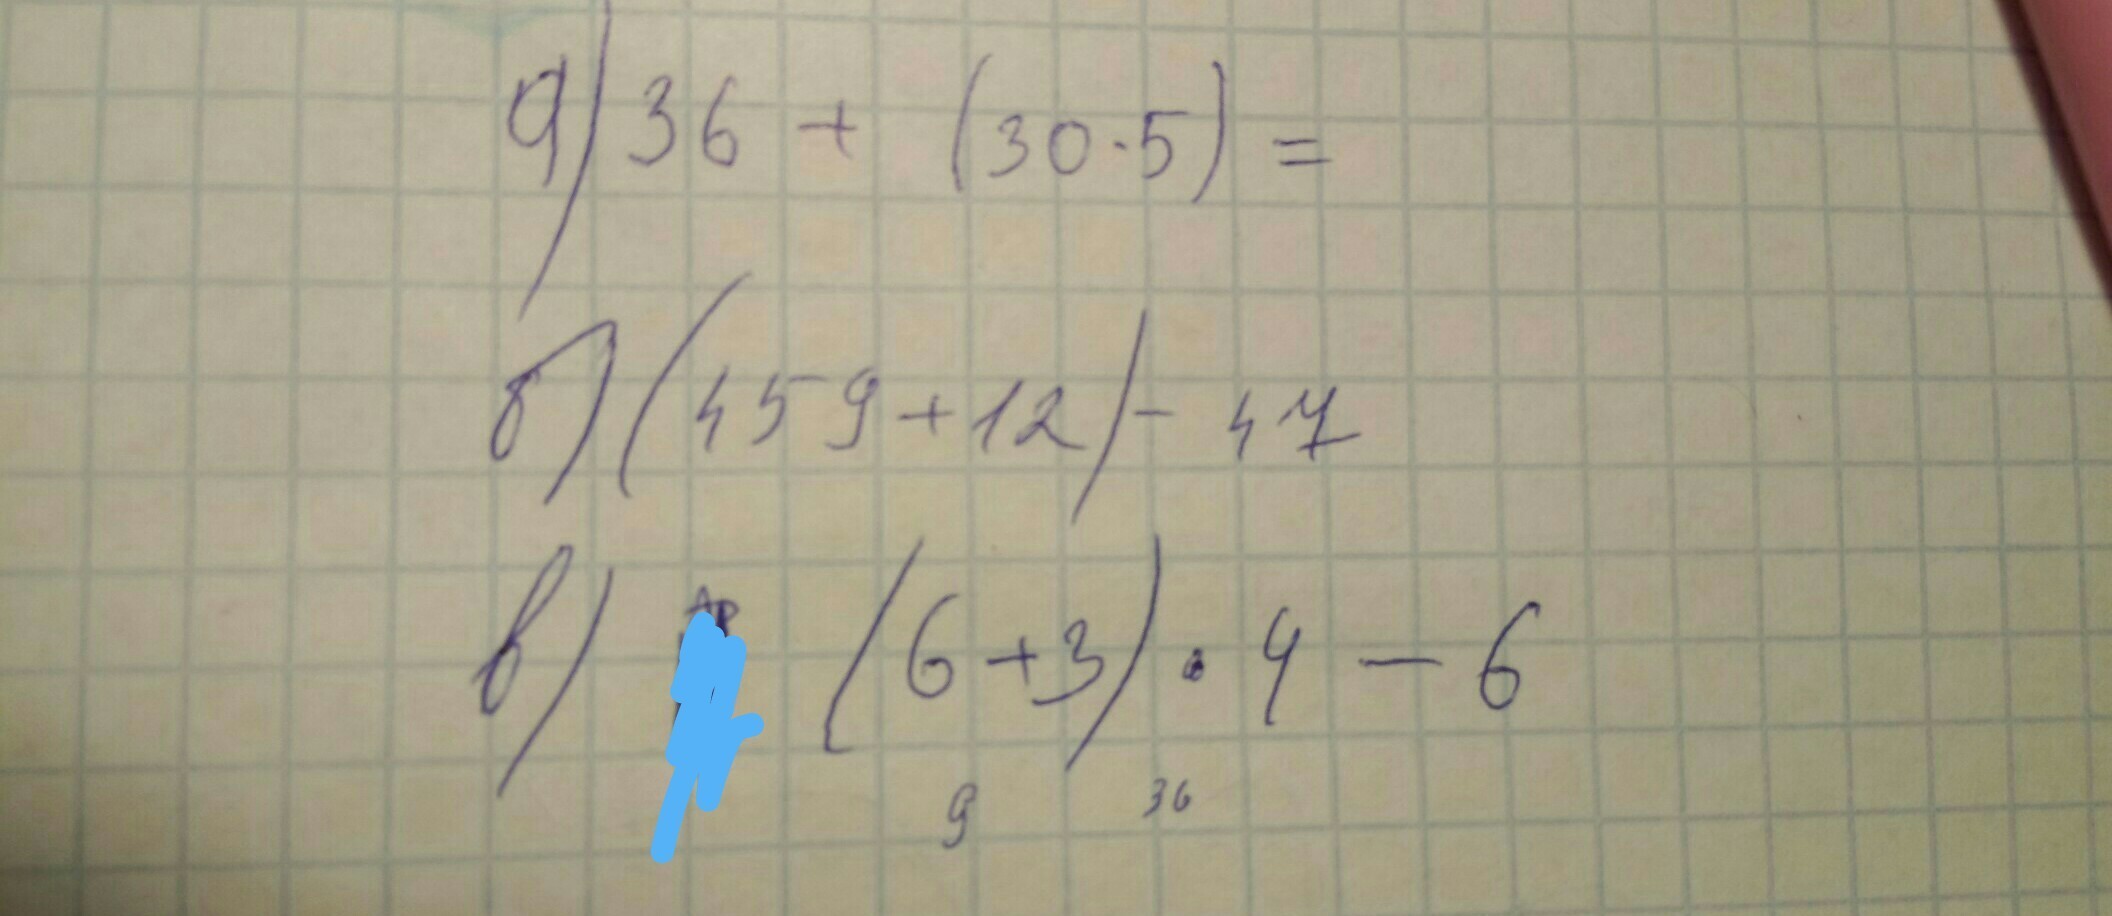 а) 36 + (30·5) =
б) (459+12) - 47
в) (6+3) · 4 - 6
9 36